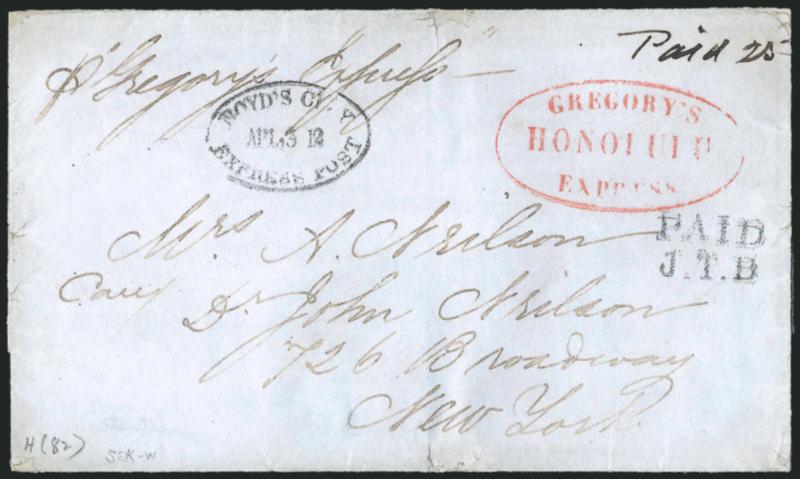 Paid 25
pr "Gregory's Express"
BOYD'S CITY
APL 3 12
EXPRESS POST
GREGORY'S
HONOLULU
EXPRESS
PAID
J.T.B
Mrs A. Neilson
Care
Dr John Neilson
726 Broadway
New York
H(82)
SEK-W